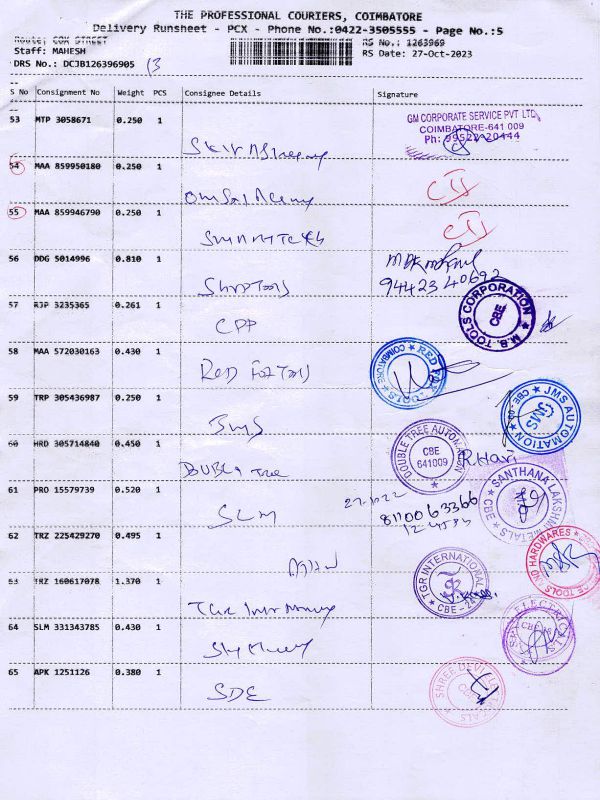 THE PROFESSIONAL COURIERS, COIMBATORE
Delivery Runsheet - PCX - Phone No.:0422-3505555 - Page No.:5
Route: COX STREET
RS No.: 1263969
Staff: MAHESH
RS Date: 27-Oct-2023
DRS No.: DCJB126396905 13
S No Consignment No Weight PCS Consignee Details Signature
53 MTP 3058671 0.250 1
GM CORPORATE SERVICE PVT LTD
COIMBATORE-641 009
Ph: 99522 20444
54 MAA 859950180 0.250 1
55 MAA 859946790 0.250 1
56 DDG 5014996 0.810 1
94423 40692
M.B. TOOLS CORPORATION CBE
57 RJP 3235365 0.261 1
CPP
58 MAA 572030163 0.430 1
RED FOX TOOLS COIMBATORE
59 TRP 305436987 0.250 1
JMS
JMS AUTOMATION JMS
60 HRD 305714840 0.450 1
DOUBLE TREE AUTOMATION CBE 641009
R.Hari
61 PRO 15579739 0.520 1
SLM
8110063366
SANTHANA LAKSHMI METALS CBE
62 TRZ 225429270 0.495 1
TOOLS AND HARDWARES
63 TRZ 160617078 1.370 1
TGR INTERNATIONAL
64 SLM 331343785 0.430 1
65 APK 1251126 0.380 1
SDE
SHREE DEVI